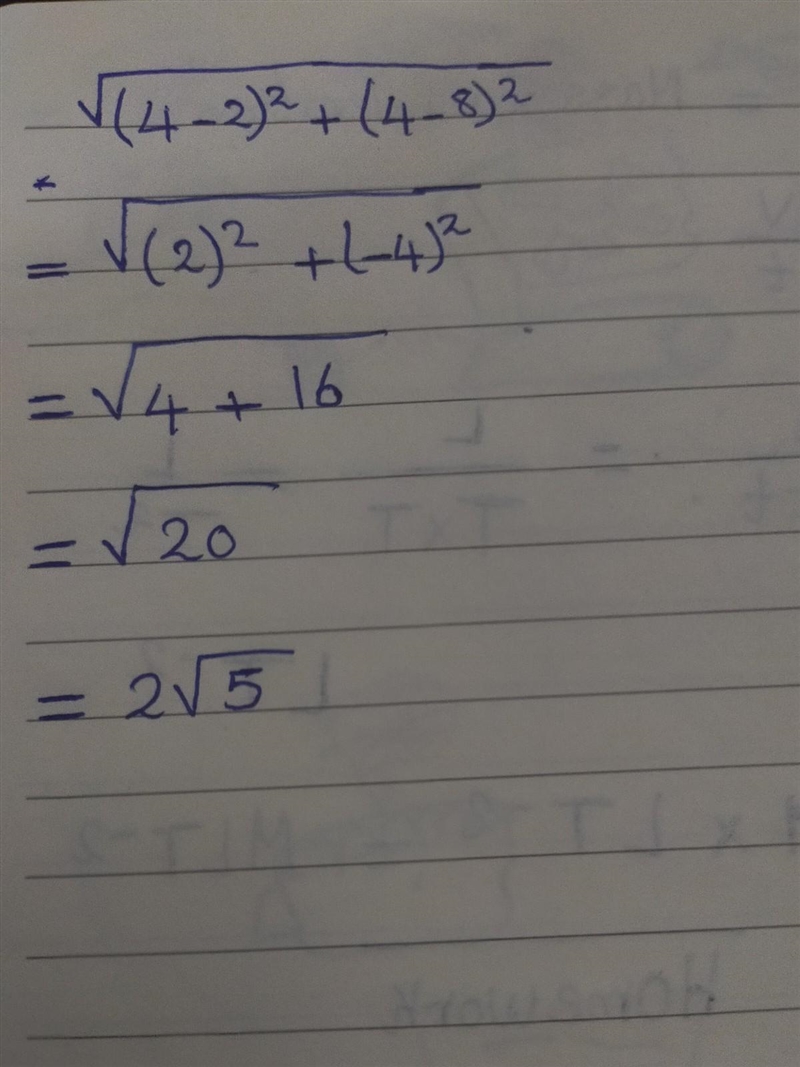 √(4-2)² + (4-8)²
= √(2)² + (-4)²
= √4 + 16
= √20
= 2√5